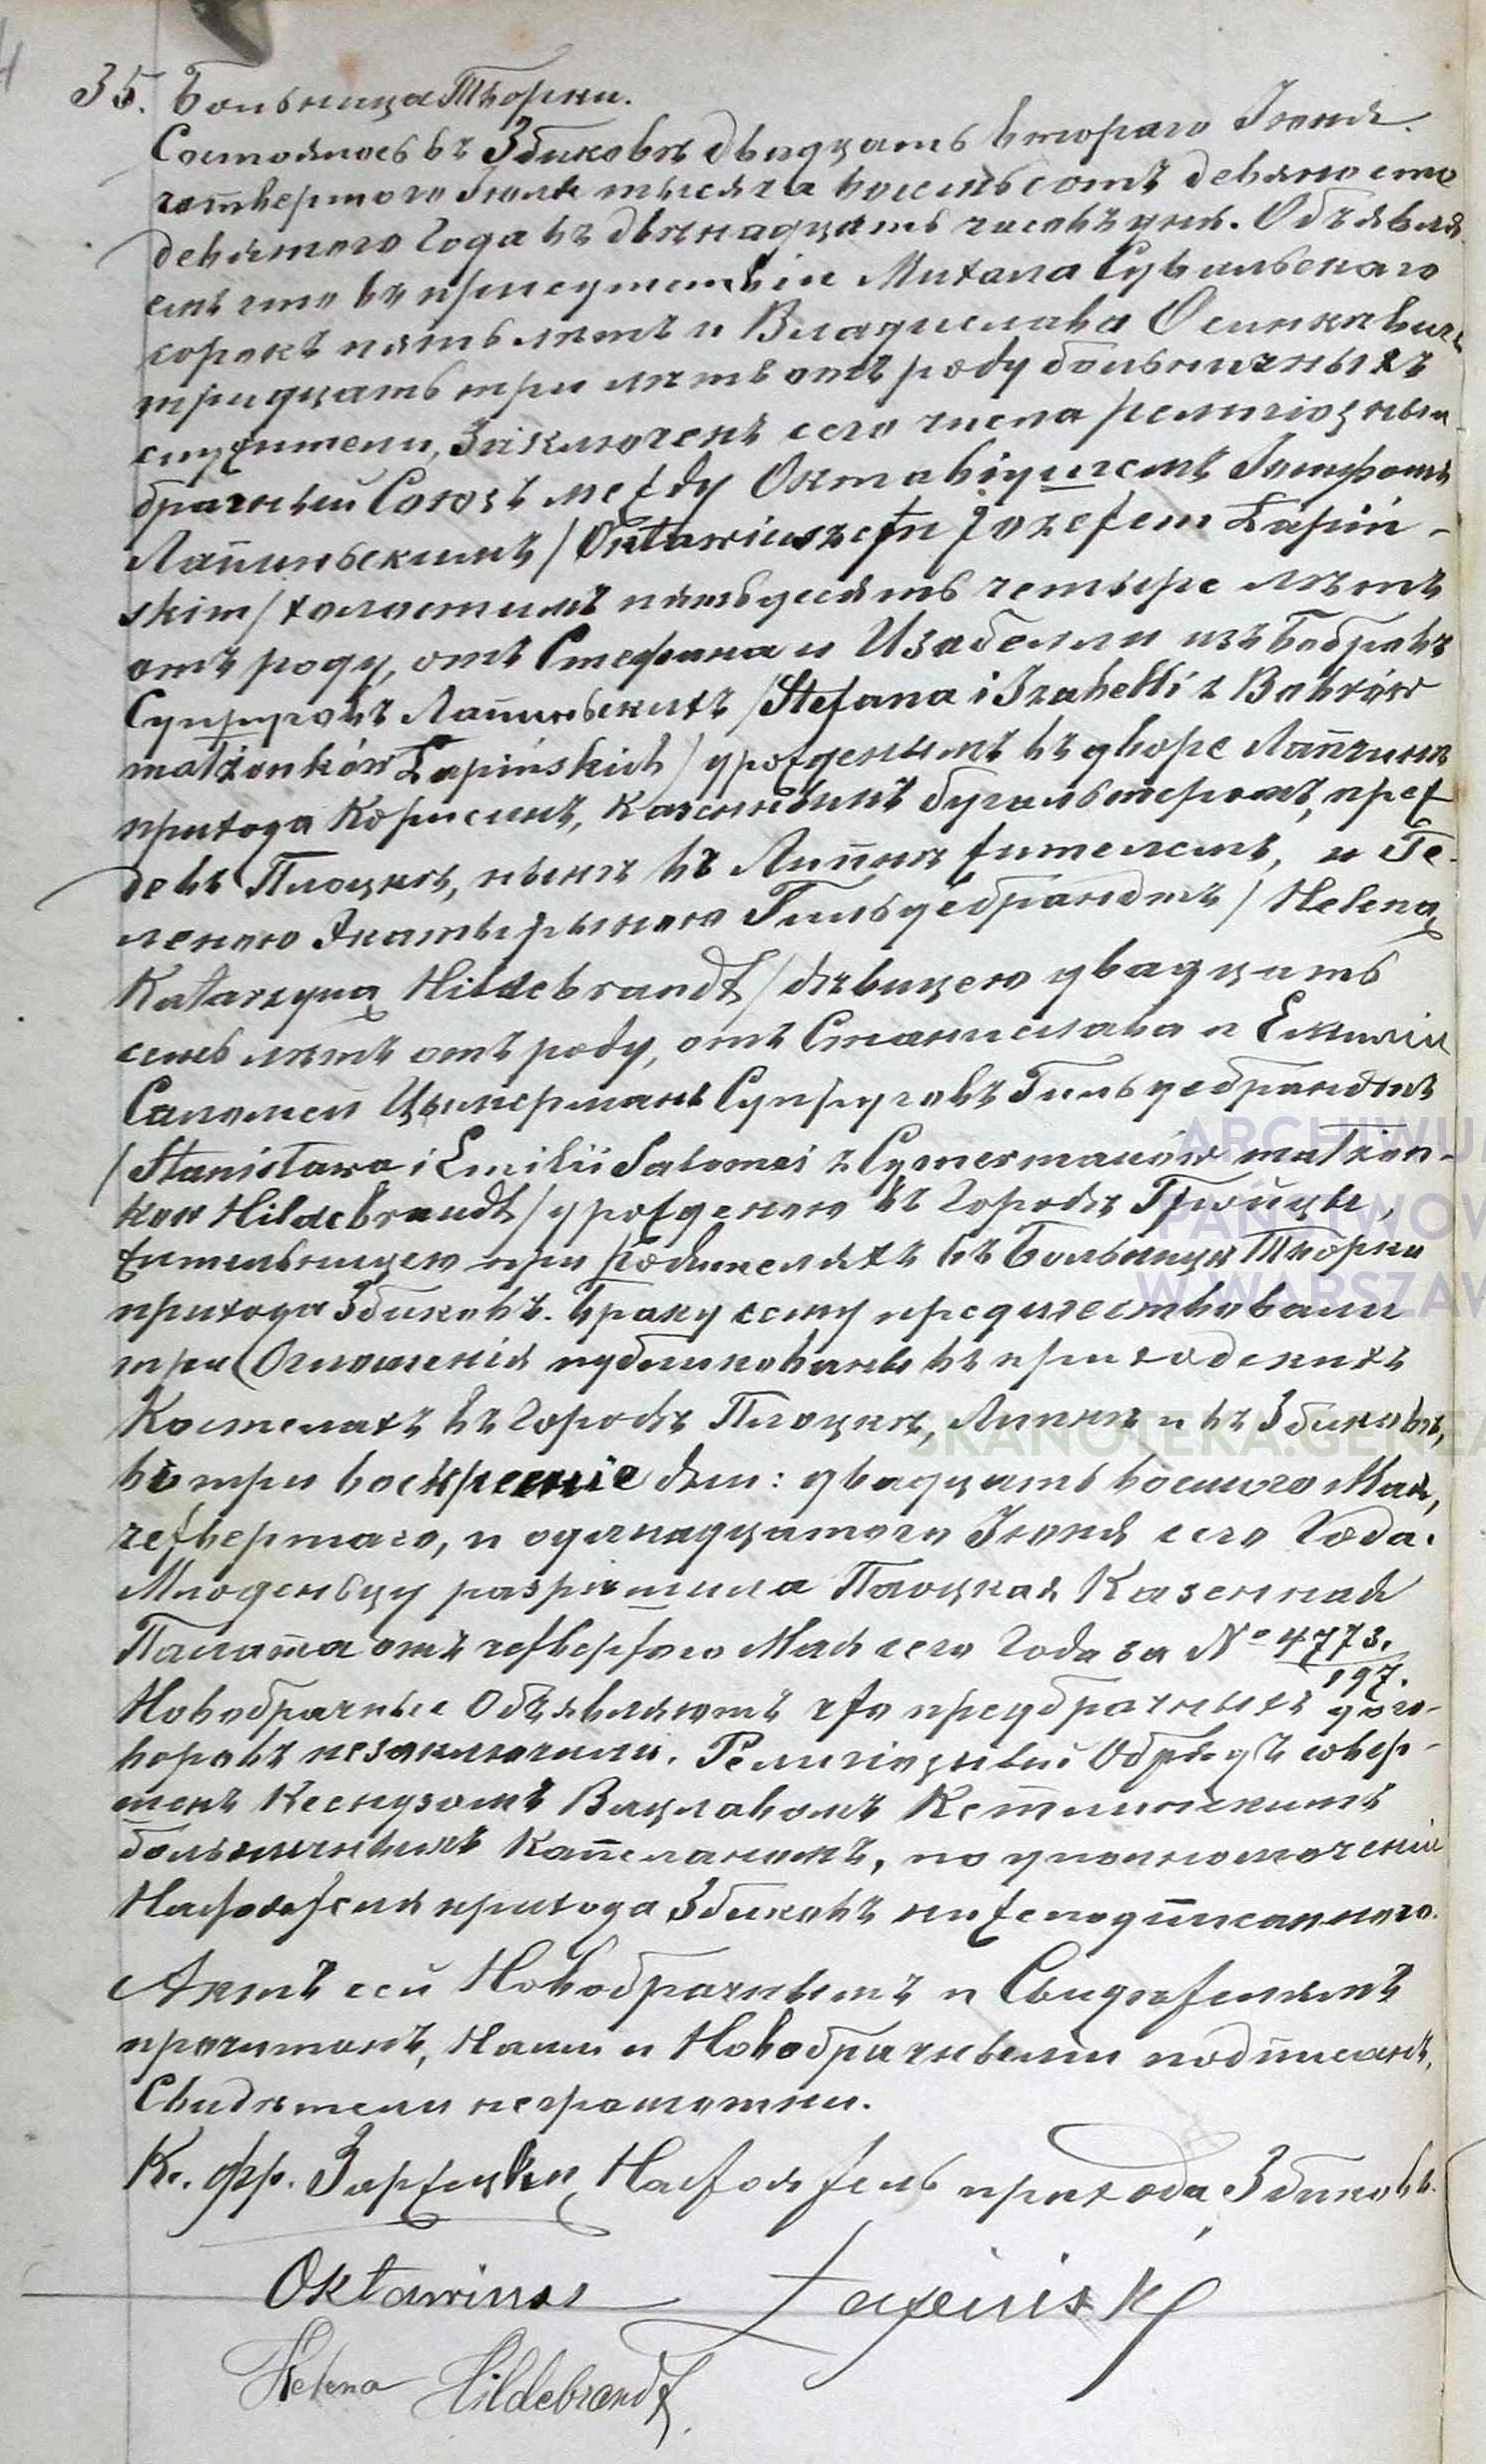 35. Больница Творки.
Состоялось въ Збиковѣ двадцать втораго Іюня
четвертого Іюля тысяча восемьсотъ девяносто
девятого Года въ двѣнадцать часовъ дня. Объявля
емъ что въ присутствіи Михала Сувальскаго
сорокъ пять лѣтъ и Владислава
тридцать три лѣтъ отъ роду больничныхъ
служители, Заключенъ сего числа религіозный
брачный Союзъ между Октавіушемъ Іозефомъ
Лапиньскимъ /Oktawiuszem Józefem Łapiń-
skim/ холостымъ пятьдесятъ четыре лѣтъ
отъ роду, отъ Стефана и Изабелли изъ Бобровъ
Супруговъ Лапиньскихъ /Stefana i Izabelli z Bobrów
małżonków Łapińskich/ урожденнымъ въ дворѣ
прихода Корисинъ, Казеннымъ бугальтеромъ, преж
девъ Плоцкѣ, нынѣ въ Липнѣ жителемъ, и Ге-
леною Экатырыною Гильдебрандтъ /Heleną
Katarzyną Hildebrandt/ дѣвицею двадцать
семь лѣтъ отъ роду, отъ Станислава и Емиліи
Саломеи Цымерманъ Супруговъ Гильдебрандтъ
/Stanisława i Emilii Salomei z Cymermanów małżon-
ków Hildebrandt/ урожденою въ Городѣ Гройцы,
жительницею при родителяхъ въ Больница Творки
прихода Збиковъ. Браку сему предшествовали
три Оглошенія публикованы въ приходскихъ
Костелахъ въ Городѣ Плоцкѣ, Липнѣ и въ Збиковѣ,
въ три воскресніе дни: двадцать восьмого Мая,
четвертаго, и одиннадцатого Іюня сего Года.
Млоденьцу разрѣшила Плоцкая Казенная
Палата отъ четвертого Мая сего Года за № 4773.
197.
Новобрачные Объявляютъ что предбрачныхъ дого-
воровъ незаключили. Религіозный Обрядъ совер-
шенъ Ксендзомъ Вацлавомъ
больничнымъ Каппеланомъ, по уполномоченіи
Настоятеля прихода Збиковъ нижеподписанного.
Актъ сей Новобрачнымъ и Свидѣтелямъ
прочитанъ, Нами и Новобрачными подписанъ,
Свидѣтели неграмотни.
Кс. Фр. Настоятель прихода Збиковъ.
Oktawiusz Łapiński
Helena Hildebrandt
ARCHIWUM
PAŃSTWOW
W WARSZAW
SKANOTEKA.GENEA